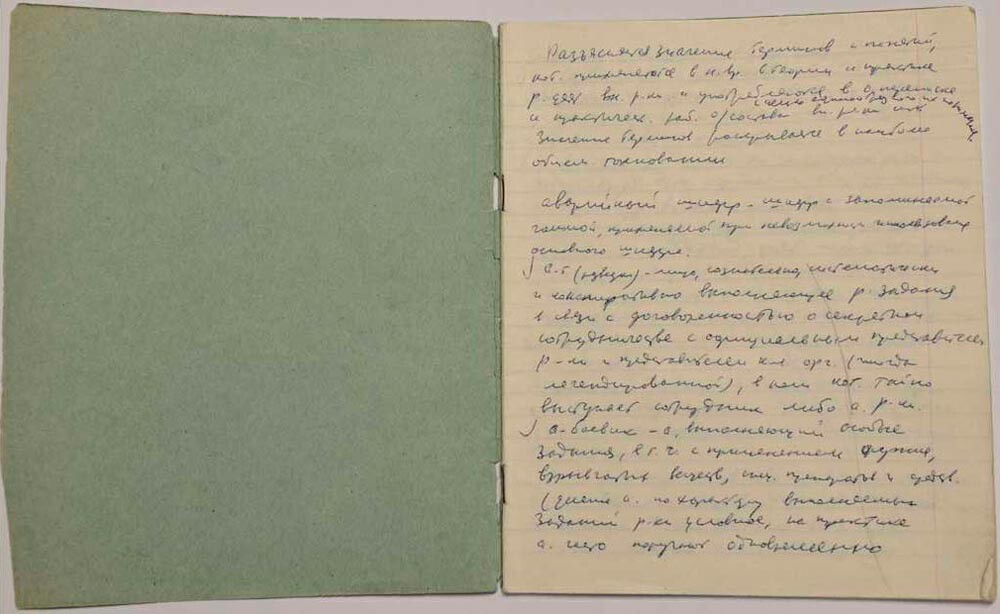 Разъясняется значение терминов и понятий,
кот. применяются в н.вр. в теории и практике
р. деят вн. р-ки и употребляются в о.переписке
с целью единообразного их понимания
и практич. раб. о/состава вн. р-ки
Значение терминов раскрывается в наиболее
общем толковании
аварийный шифр - шифр с запоминаемой
гаммой, применяемой при невозможности использования
основного шифра.
а-т (разведки) - лицо, сознательно, систематически
и конспиративно выполняющее р. задания
в связи с договоренностью о секретном
сотрудничестве с официальным представителем
р-ки и представителем или орг. (иногда
легендированной), в кот. тайно
выступает сотрудник либо а. р-ки.
а-боевик - а, выполняющий особые
задания, в т.ч. с применением оружия,
взрывчатых веществ, спец. препаратов и средств.
(деление а. по характеру выполняемых
заданий р-ки условное, на практике
а. часто поручают одновременно